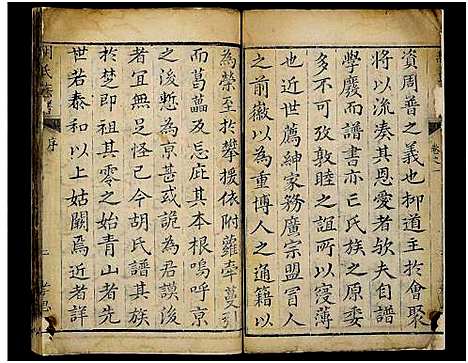 資周普之義也抑道主於會聚
將以流湊其恩愛者歟夫自宗
學廢而譜書亦亡氏族之原委
多不可攷敦睦之誼所以寖薄
也近世薦紳家務廣宗盟冒人
之前徽以為重博人之通籍以
為榮至於攀援依附蘿蔦蔓引
而葛藟及忘庇其本根嗚呼京
之後慙為京甚或詭為君謨後
者宜無足怪已今胡氏譜其族
於楚即祖其零之始青山者先
世若泰和以上姑闕焉近者詳
氏族譜
序